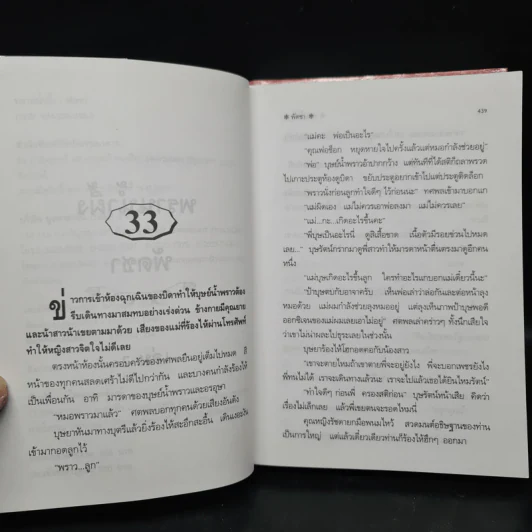 33
ข่าวการเข้าห้องฉุกเฉินของบิดาทำให้บุษย์น้ำพราวต้อง
รีบเดินทางมาสมทบอย่างเร่งด่วน ข้างกายมีคุณยาย
และน้าสาวน้าเขยตามมาด้วย เสียงของแม่ที่ร้องไห้ผ่านโทรศัพท์
ทำให้หญิงสาวจิตใจไม่ดีเลย
ตรงหน้าห้องนั้นครอบครัวของทศพลยืนอยู่เต็มไปหมด สี
หน้าของทุกคนสลดเศร้าไม่ดีไปกว่ากัน และบางคนกำลังร้องไห้
เป็นเพื่อนกัน อาทิ มารดาของบุษย์น้ำพราวและอรอุษา
"หมอพราวมาแล้ว" ศตพลบอกทุกคนด้วยเสียงอันดัง
บุษยาหันมาทางบุตรีแล้วยิ่งร้องไห้สะอึกสะอื้น เดิน
เข้ามากอดลูกไว้
"พราว...ลูก"
❋ พัดชา ❋
439
"แม่คะ พ่อเป็นอะไร"
"คุณพ่อช็อก หยุดหายใจไปครั้งแล้วแต่หมอกำลังช่วยอยู่"
"พ่อ" บุษย์น้ำพราวอ้าปากกว้าง แต่ทันทีที่ได้สติก็ถลาพรวด
ไปเกาะประตูห้องดูบิดา ขยับประตูอยากเข้าไปแต่ประตูติดล็อก
"พราวนั่งก่อนลูกทำใจดีๆ ไว้ก่อนนะ" ทศพลเข้ามาบอกแก
"แม่ผิดเอง แม่ไม่ควรเอาพ่อลงมา แม่ไม่ควรเลย"
"แม่...กะ...เกิดอะไรขึ้นคะ"
"พี่บุษเป็นอะไรนี่ ดูสิเสื้อขาด เนื้อตัวมีรอยช่วนไปหมด
เลย..." บุษรัตน์กรากมาดูพี่สาวทำให้มารดาหน้าตื่นตรงมาดูอีกคน
หนึ่ง
"แม่บุษเกิดอะไรขึ้นลูก ใครทำอะไรแกบอกแม่เดี๋ยวนี้นะ"
"ป้าบุษตบกับอาจาครับ เห็นพ่อเล่าว่าล่อกันสะเทือนหน้าลุง
หมอด้วย แม่หมอกำลังช่วยลุงหมออยู่ แต่ลุงเห็นภาพป้าบุษพอดี
ออกซิเจนของแม่ผมเลยเอาไม่อยู่" ศตพลเล่าคร่าวๆ ทั้งนึกเสียใจ
ว่าเขาไม่น่าพละไปธุระเลยในช่วงนั้น
บุษยาร้องไห้โฮกอดคอกับน้องสาว
"เราจะตายไหมถ้าเขาตายพี่จะอยู่ยังไง พี่จะบอกเพชรยังไง
พี่ทนไม่ได้ เราจะเดินทางแล้วนะ เราจะไปแล้วเธอได้ยินไหมรัตน์"
"ทำใจดีๆ ก่อนพี่ ครองสติก่อน" บุษรัตน์หน้าเสีย คิดว่า
เรื่องไม่เล็กเลย แล้วพี่เขยตนจะรอดไหมนี่
คุณหญิงรัชดายกมือพนมไหว้ สวดมนต์อธิษฐานของท่าน
เป็นการใหญ่ แต่แล้วเดี๋ยวเดียวท่านก็ร้องไห้ฮึกๆ ออกมา